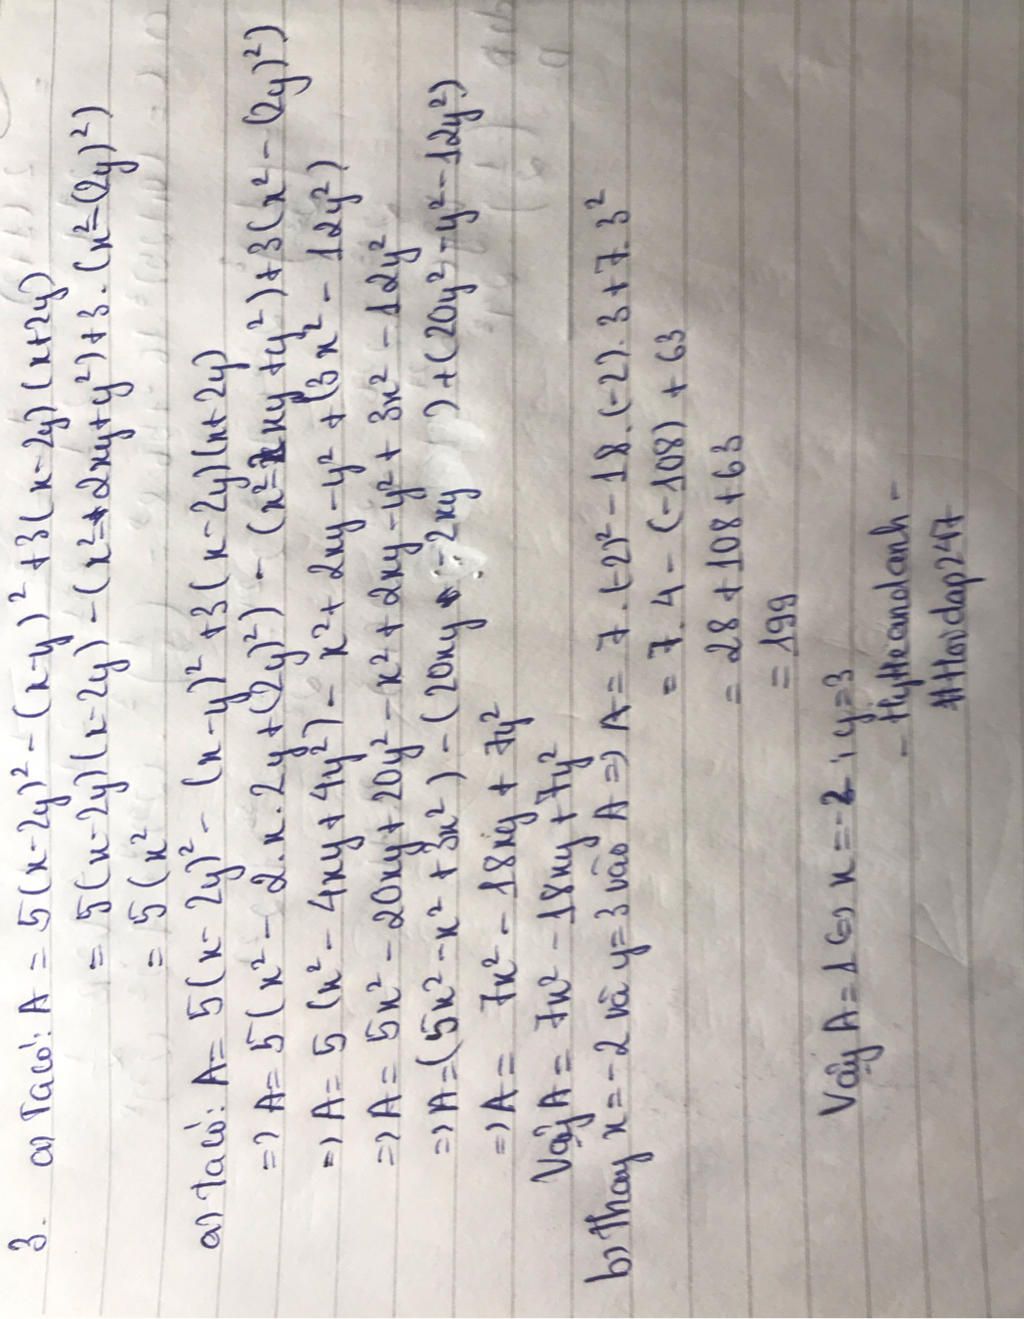 3. a) Ta có: A = 5(x-2y)² - (x-y)² + 3(x-2y)(x+2y)
= 5(x-2y)(x-2y) - (x²+2xy+y²)+3.(x²-(2y)²)
= 5(x²
a) Ta có: A = 5(x-2y)² - (x-y)² + 3(x-2y)(x+2y)
=> A = 5(x² - 2.x.2y+(2y)²) - (x²-2xy+y²)+3(x²-(2y)²)
=> A = 5(x² - 4xy + 4y²) - x² + 2xy - y² + (3x² - 12y²)
=> A = 5x² - 20xy + 20y² - x² + 2xy - y² + 3x² - 12y²
=> A = (5x² - x² + 3x²) - (20xy - 2xy) + (20y² - y² - 12y²)
=> A = 7x² - 18xy + 7y²
Vậy A = 7x² - 18xy + 7y²
b) Thay x = -2 và y = 3 vào A => A = 7.(-2)² - 18.(-2).3 + 7.3²
= 7.4 - (-108) + 63
= 28 + 108 + 63
= 199
Vậy A = x = -2; y = 3
#Hoidap247